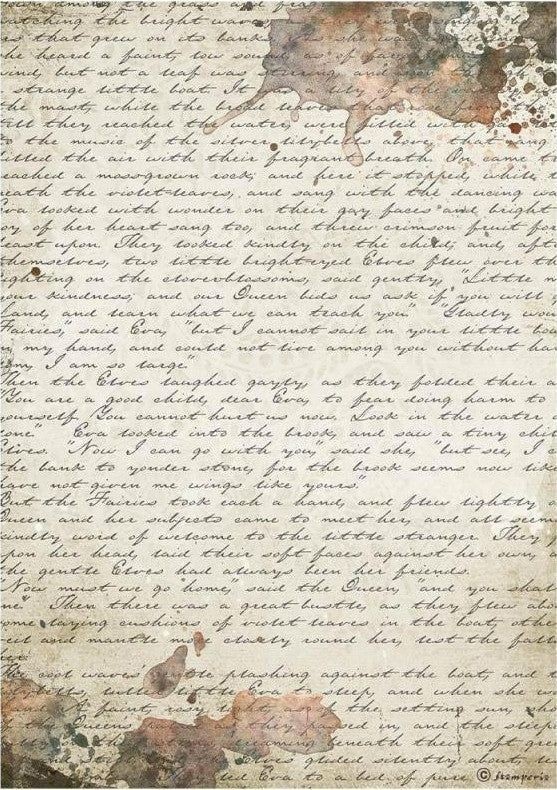 down among the grass and fragr
atching the bright waves
rs that grew on its bank
he heard a faint, low sound, as of
wind, but not a leaf was stirring, and
strange little boat. It a lily of the
the mast, while the broad leaves that
till they reached the water, were filled with
to the music of the silver lilybells above, that rang
illed the air with their fragrant breath. On came t
eached a moss-grown rock; and here it stopped, while t
neath the violet-leaves, and sang with the dancing wa
Eva looked with wonder on their gay faces and bright
oy of her heart sang too, and threw crimson fruit for
east upon. They looked kindly on the child, and, afte
themselves, two little bright-eyed Elves flew over th
ighting on the cloverblossoms, said gently, "Little m
our kindness; and our Queen bids us ask if you will
Land, and learn what we can teach you." "Gladly wou
Fairies," said Eva, "but I cannot sail in your little bo
my hand, and could not live among you without har
my I am so large."
Then the Elves laughed gayly, as they folded their a
"You are a good child, dear Eva, to fear doing harm to
yourself. You cannot hurt us now. Look in the water
one." Eva looked into the brook, and saw a tiny chil
Elves. "Now I can go with you," said she, "but see, I c
the bank to yonder stone, for the brook seems now like
have not given me wings like yours."
But the Fairies took each a hand, and flew lightly
Queen and her subjects came to meet her, and all seem
kindly word of welcome to the little stranger. They
upon her head, laid their soft faces against her own,
the gentle Elves had always been her friends.
"Now must we go home," said the Queen, "and you shal
me." Then there was a great bustle, as they flew abo
ome laying cushions of violet leaves in the boat, othe
veil and mantle mo closely round her, lest the fall
her.
The cool waves gentle plashing against the boat, and t
lilybells, lulled little Eva to sleep, and when she w
and of faint, rosy light, as of the setting sun, sh
the Queens, as they passed in, and the sleep
till the dreaming beneath their soft gree
and still the Elves glided silently about,
led Eva to a bed of pure
© Stamperia